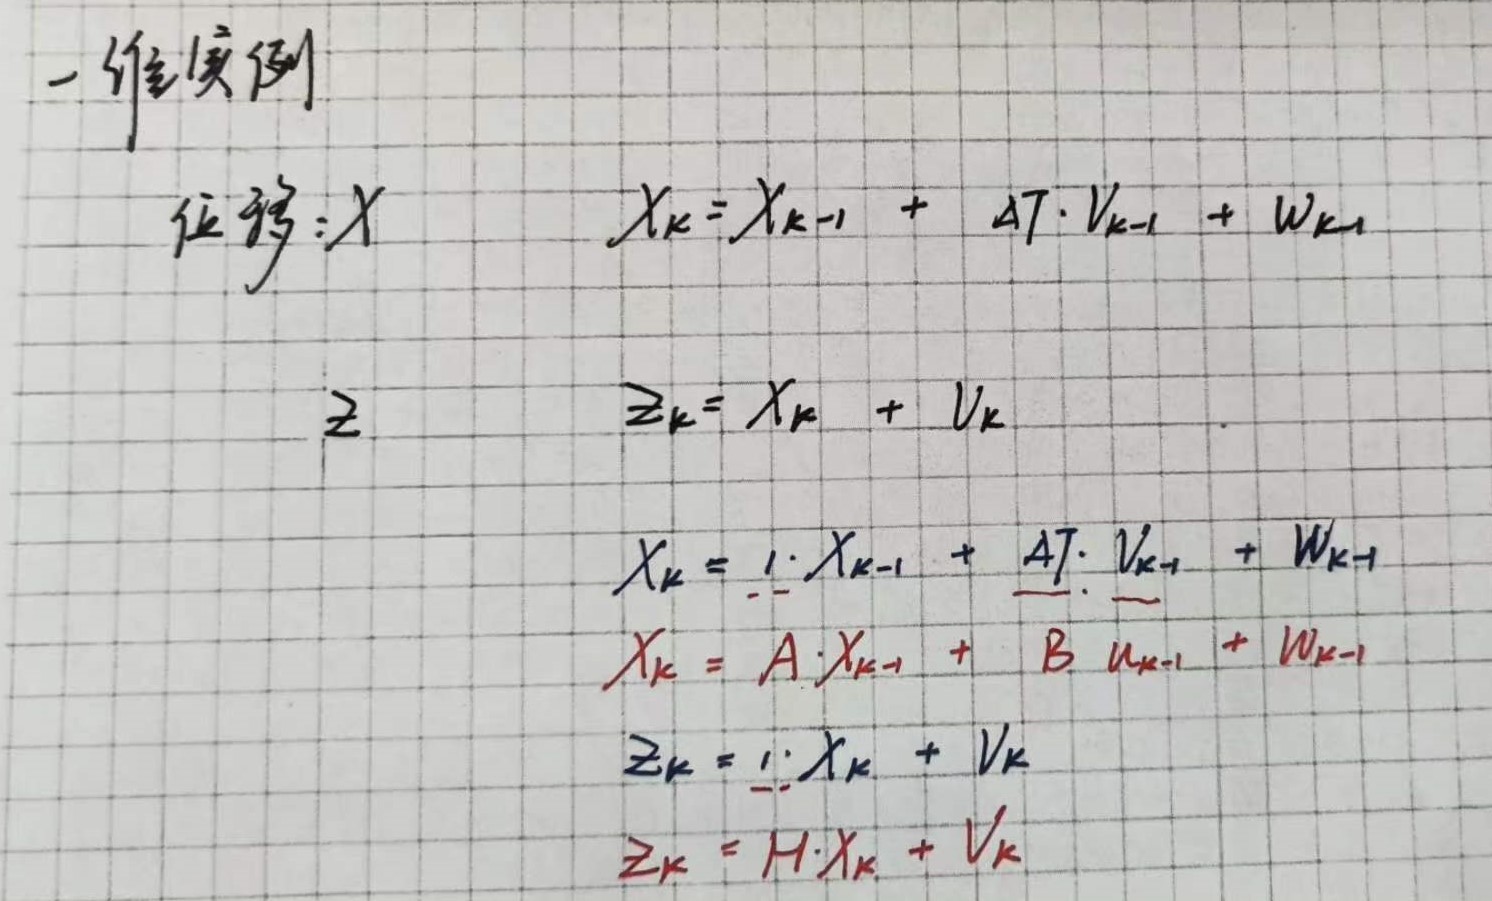 一维实例
位移:X X_k = X_{k-1} + ΔT · V_{k-1} + W_{k-1}
Z Z_k = X_k + V_k
X_k = 1 · X_{k-1} + ΔT · V_{k-1} + W_{k-1}
X_k = A · X_{k-1} + B u_{k-1} + W_{k-1}
Z_k = 1 · X_k + V_k
Z_k = H · X_k + V_k